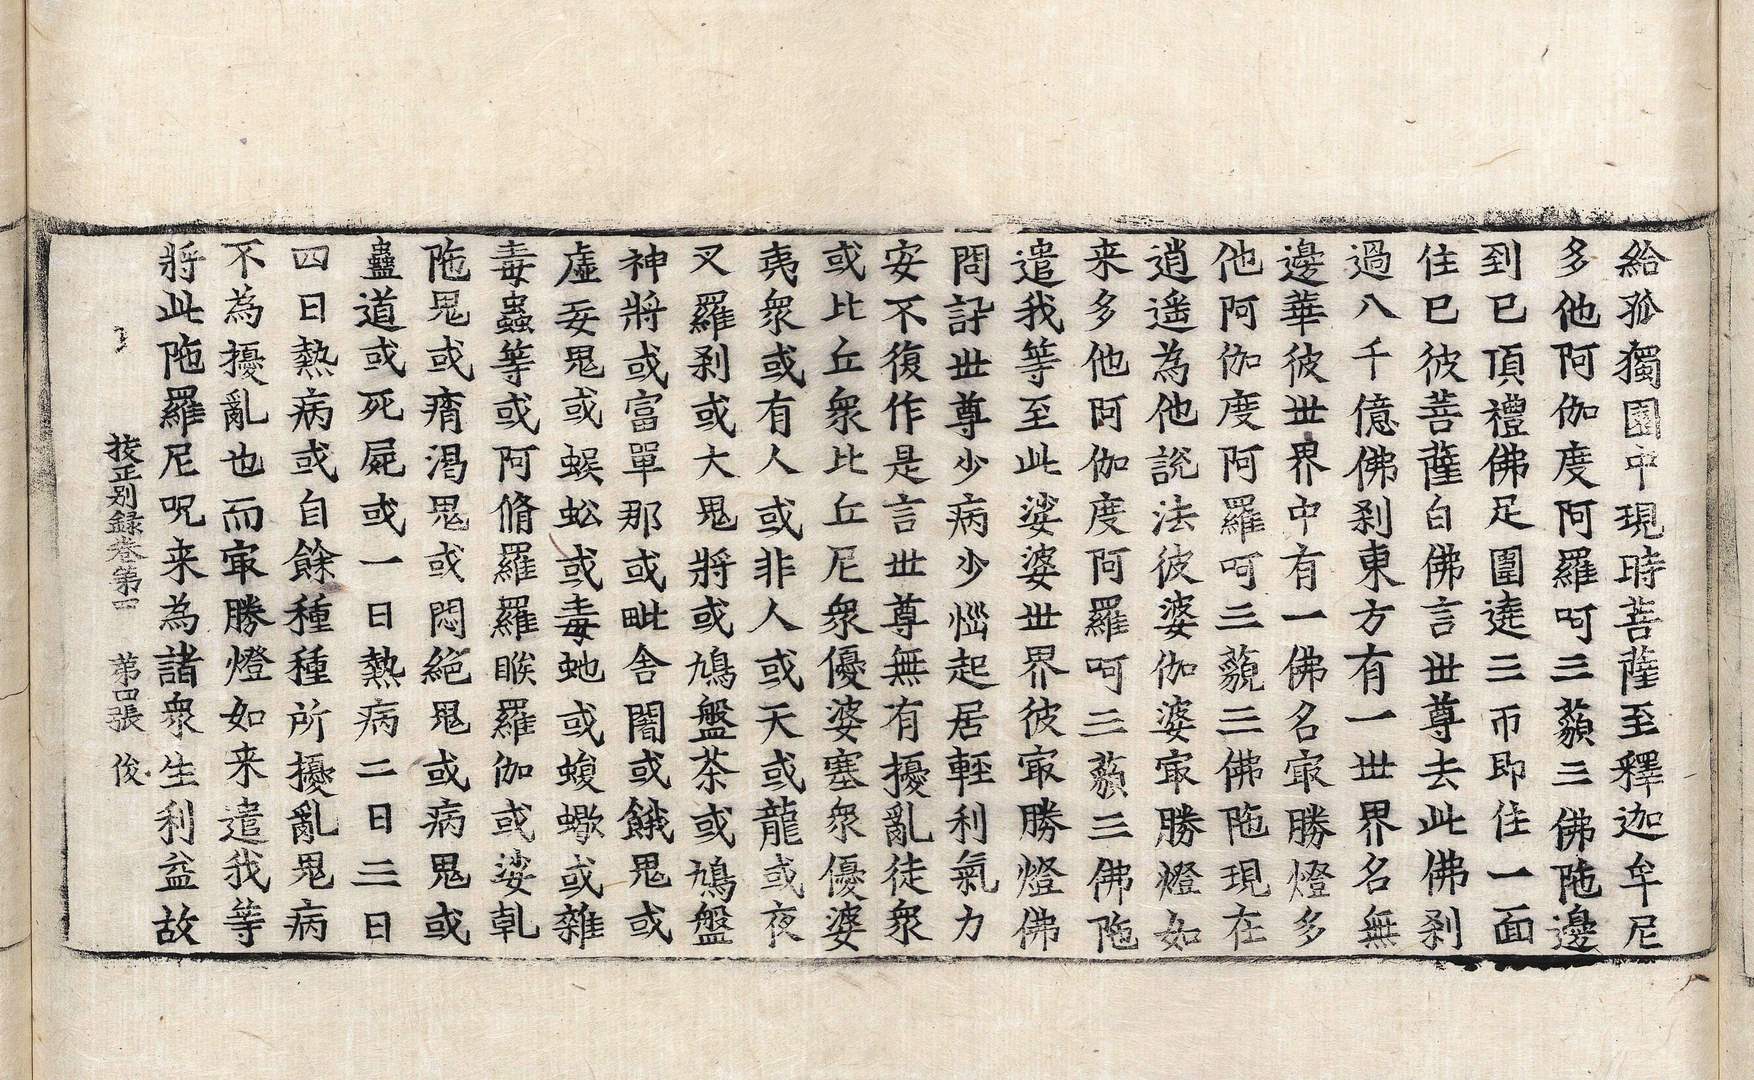 給孤獨園中現時菩薩至釋迦牟尼
多他阿伽度阿羅呵三藐三佛陁邊
到已頂禮佛足圍遶三帀即住一面
住已彼菩薩白佛言世尊去此佛刹
過八千億佛刹東方有一世界名無
邊華彼世界中有一佛名㝡勝燈多
他阿伽度阿羅呵三藐三佛陁現在
逍遥為他說法彼婆伽婆㝡勝燈如
来多他阿伽度阿羅呵三藐三佛陁
遣我等至此娑婆世界彼㝡勝燈佛
問訊世尊少病少惱起居輕利氣力
安不復作是言世尊無有擾亂徒衆
或比丘衆比丘尼衆優婆塞衆優婆
夷衆或有人或非人或天或龍或夜
叉羅刹或大鬼將或鳩盤茶或鳩盤
神將或富單那或毗舍闍或餓鬼或
虛妄鬼或蜈蚣或毒虵或蝮蠍或雜
毒蟲等或阿脩羅羅睺羅伽或娑乹
陁鬼或㾕渴鬼或悶絕鬼或病鬼或
蠱道或死屍或一日熱病二日三日
四日熱病或自餘種種所擾亂鬼病
不為擾亂也而㝡勝燈如来遣我等
將此陁羅尼呪来為諸衆生利益故
挍正别録卷第四 第四張 俊